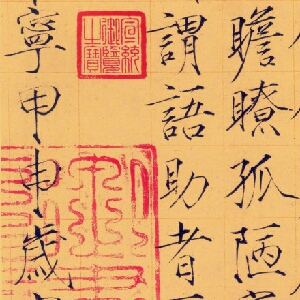 瞻瞭孤陋
謂語助者
宣統
御覽
之寶
寧甲申歲